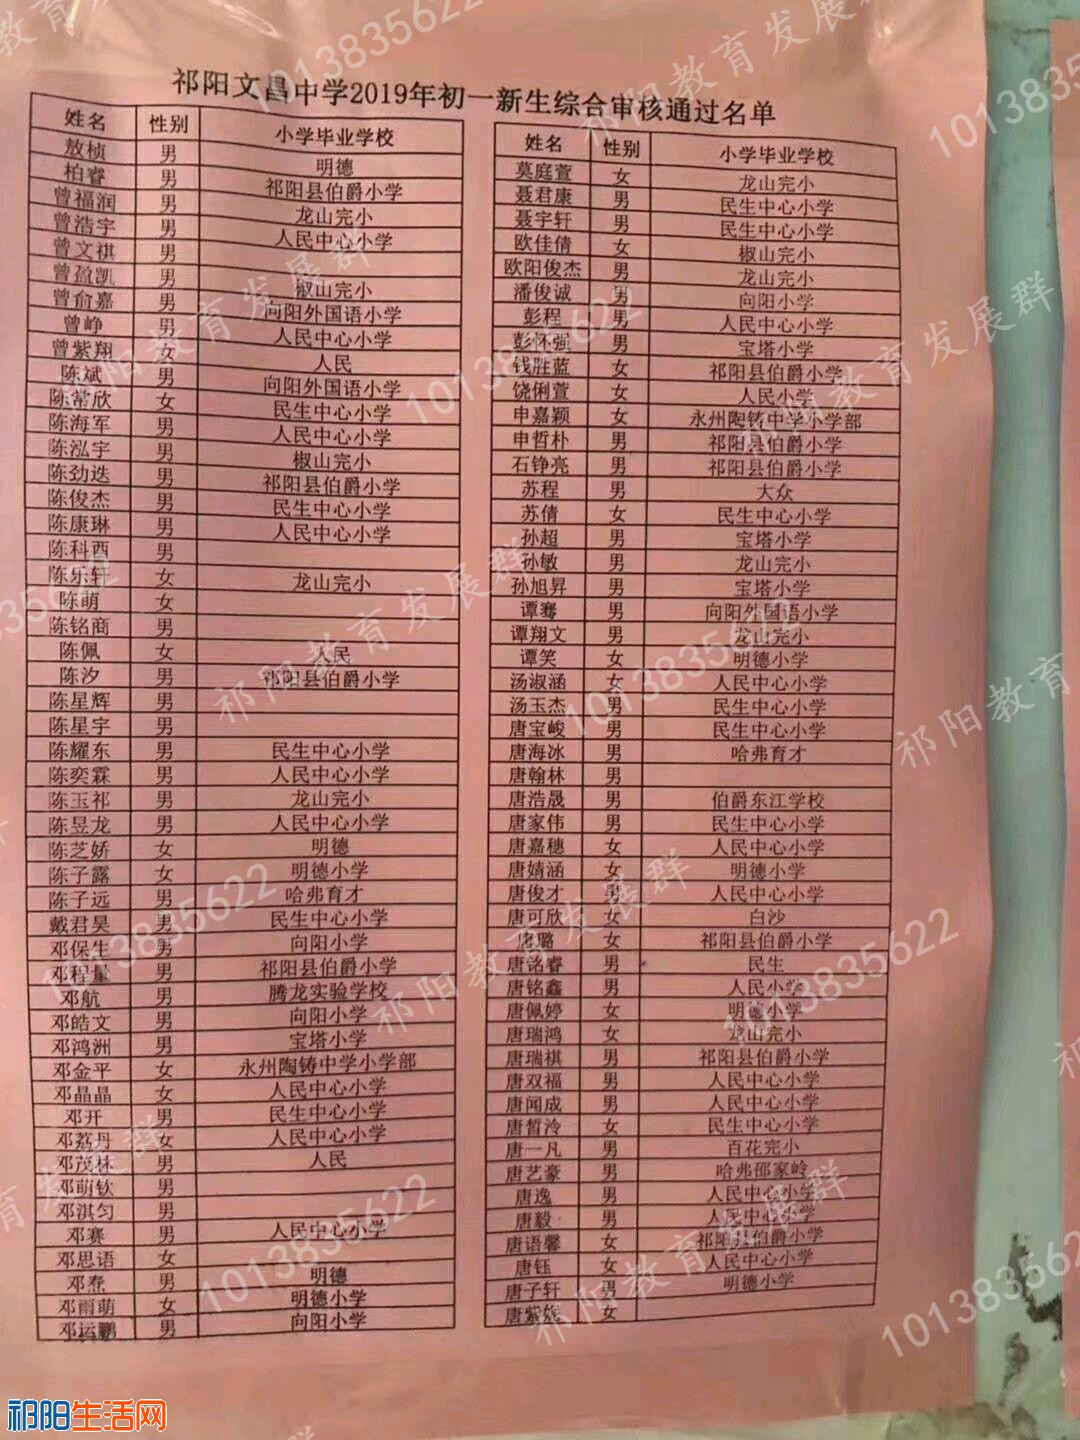 祁阳文昌中学2019年初一新生综合审核通过名单
姓名 性别 小学毕业学校
敖桢 男 明德
柏睿 男 祁阳县伯爵小学
曾福润 男 龙山完小
曾浩宇 男 人民中心小学
曾文祺 男
曾盈凯 男 椒山完小
曾俞嘉 男 向阳外国语小学
曾峥 男 人民中心小学
曾紫翔 女 人民
陈斌 男 向阳外国语小学
陈常欣 女 民生中心小学
陈海军 男 人民中心小学
陈泓宇 男 椒山完小
陈劲迭 男 祁阳县伯爵小学
陈俊杰 男 民生中心小学
陈康琳 男 人民中心小学
陈科西 男
陈乐轩 女 龙山完小
陈萌 女
陈铭商 男
陈佩 女 人民
陈汐 男 祁阳县伯爵小学
陈星辉 男
陈星宇 男
陈耀东 男 民生中心小学
陈奕霖 男 人民中心小学
陈玉祁 男 龙山完小
陈昱龙 男 人民中心小学
陈芝娇 女 明德
陈子露 女 明德小学
陈子远 男 哈弗育才
戴君昊 男 民生中心小学
邓保生 男 向阳小学
邓程量 男 祁阳县伯爵小学
邓航 男 腾龙实验学校
邓皓文 男 向阳小学
邓鸿洲 男 宝塔小学
邓金平 女 永州陶铸中学小学部
邓晶晶 女 人民中心小学
邓开 男 民生中心小学
邓荔丹 女 人民中心小学
邓茂林 男 人民
邓萌钦 男
邓淇匀 男
邓赛 男 人民中心小学
邓思语 女
邓焘 男 明德
邓雨萌 女 明德小学
邓运鹏 男 向阳小学
姓名 性别 小学毕业学校
莫庭萱 女 龙山完小
聂君康 男 民生中心小学
聂宇轩 男 民生中心小学
欧佳倩 女 椒山完小
欧阳俊杰 男 龙山完小
潘俊诚 男 向阳小学
彭程 男 人民中心小学
彭怀强 男 宝塔小学
钱胜蓝 女 祁阳县伯爵小学
饶俐萱 女 人民小学
申嘉颖 女 永州陶铸中学小学部
申哲朴 男 祁阳县伯爵小学
石铮亮 男 祁阳县伯爵小学
苏程 男 大众
苏倩 女 民生中心小学
孙超 男 宝塔小学
孙敏 男 龙山完小
孙旭昇 男 宝塔小学
谭骞 男 向阳外国语小学
谭翔文 男 龙山完小
谭笑 女 明德小学
汤淑涵 女 人民中心小学
汤玉杰 男 民生中心小学
唐宝峻 男 民生中心小学
唐海冰 男 哈弗育才
唐翰林 男
唐浩晟 男 伯爵东江学校
唐家伟 男 民生中心小学
唐嘉穗 女 人民中心小学
唐婧涵 女 明德小学
唐俊才 男 人民中心小学
唐可欣 女 白沙
唐璐 女 祁阳县伯爵小学
唐铭睿 男 民生
唐铭鑫 男 人民小学
唐佩婷 女 明德小学
唐瑞鸿 女 龙山完小
唐瑞祺 男 祁阳县伯爵小学
唐双福 男 人民中心小学
唐闻成 男 人民中心小学
唐皙泠 女 民生中心小学
唐一凡 男 百花完小
唐艺豪 男 哈弗邵家岭
唐逸 男 人民中心小学
唐毅 男 人民中心小学
唐语馨 女 祁阳县伯爵小学
唐钰 女 人民中心小学
唐子轩 男 明德小学
唐紫妮 女
祁阳教育发展群 1013835622
祁阳生活网